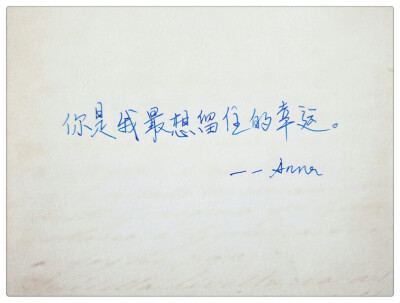 你是我最想留住的幸运。
——Anna